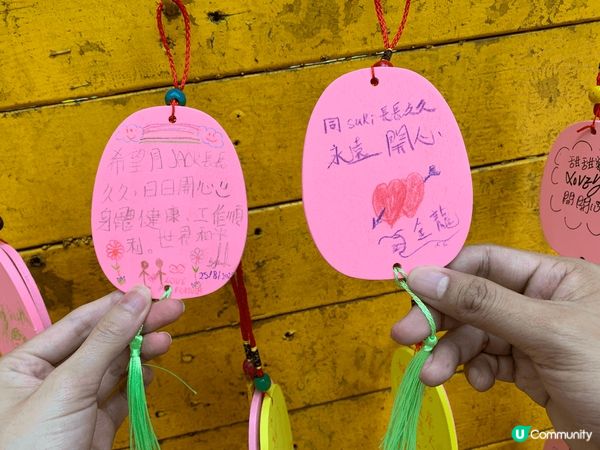 希望月JACK長長
久久,日日開心
身體健康,工作順
利。世界和平
25/8/2
同 suki 長長久久
永遠 開心
金龍
甜甜
Lovey
開開心
U Community